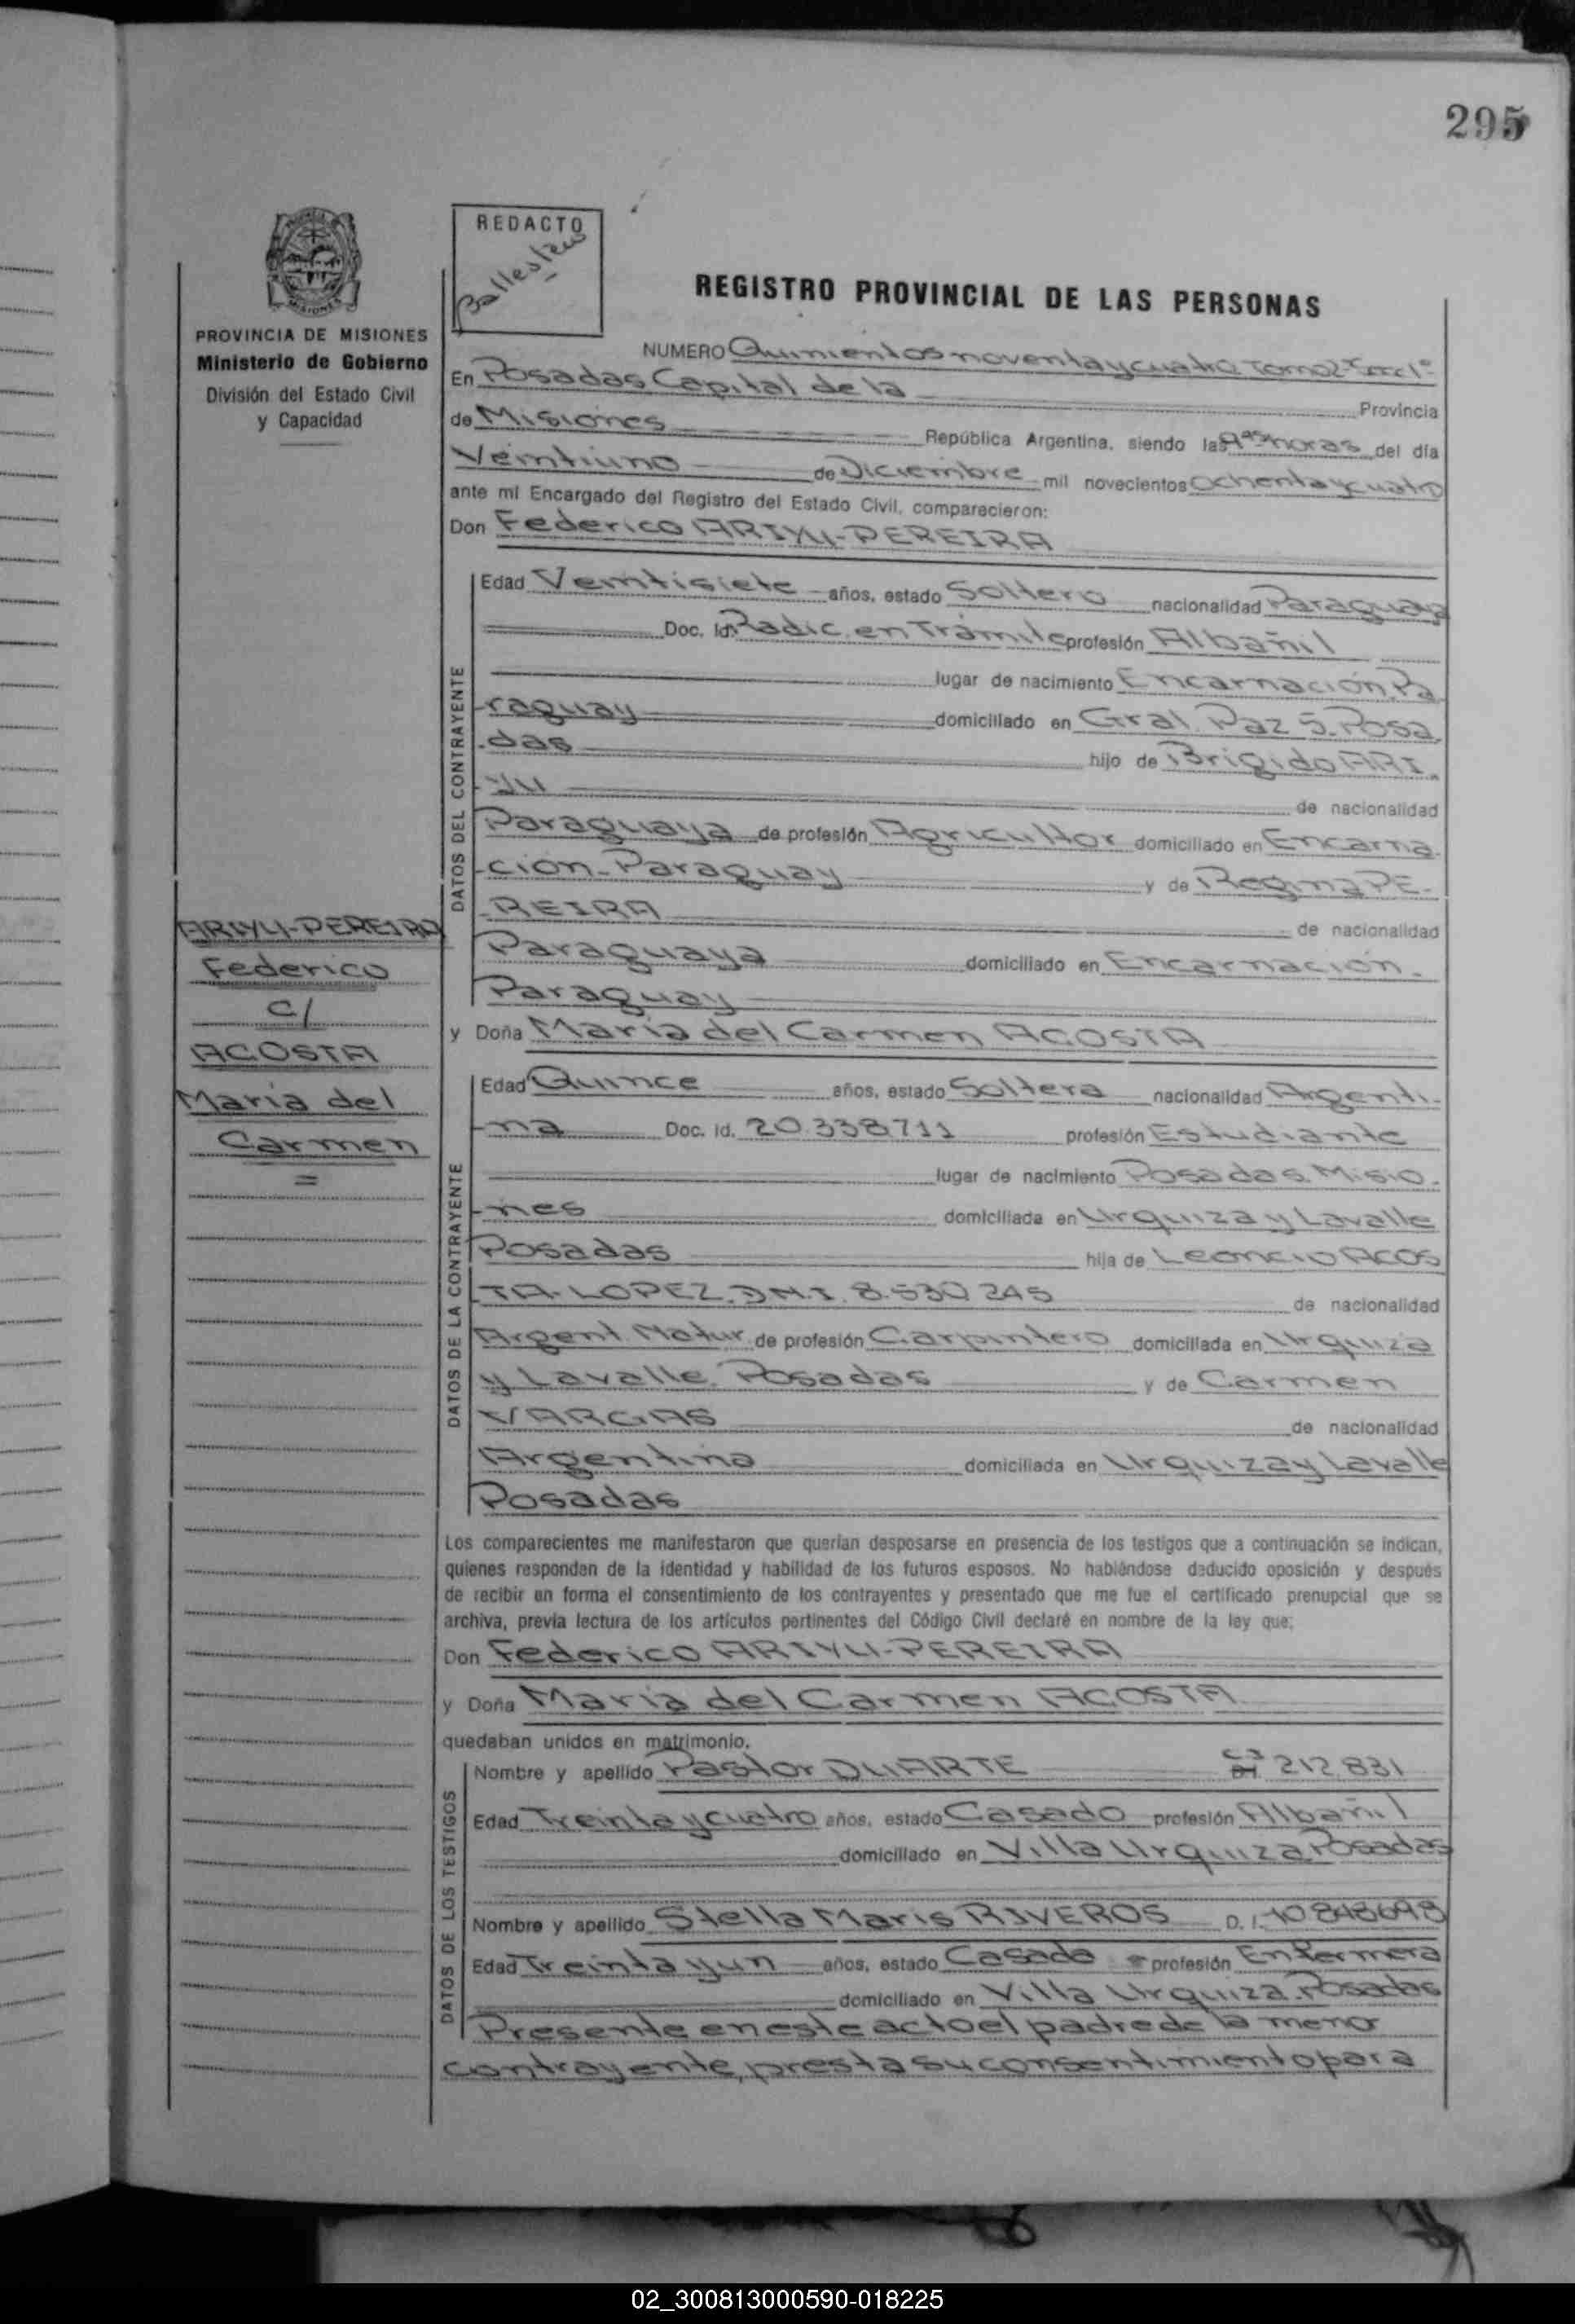 295
REDACTO
Ballestero
REGISTRO PROVINCIAL DE LAS PERSONAS
PROVINCIA DE MISIONES
Ministerio de Gobierno
División del Estado Civil
y Capacidad
NUMERO Quinientos noventa y cuatro Tomo 2º
En Posadas Capital de la Provincia
de Misiones República Argentina, siendo las horas del día
Veintiuno de Diciembre mil novecientos ochenta y cuatro
ante mi Encargado del Registro del Estado Civil, comparecieron:
Don Federico ARIYU-PEREIRA
DATOS DEL CONTRAYENTE
Edad Veintisiete años, estado Soltero nacionalidad Paraguaya
Doc. Id. Radic. en Trámite profesión Albañil
lugar de nacimiento Encarnación. Pa
raguay domiciliado en Gral. Paz 5. Posa.
das hijo de Brigido ARI.
YU de nacionalidad
Paraguaya de profesión Agricultor domiciliado en Encarna.
ción. Paraguay y de Regina PE-
REIRA de nacionalidad
Paraguaya domiciliado en Encarnación.
Paraguay
ARIYU-PEREIRA
Federico
c/
ACOSTA
Maria del
Carmen
=
y Doña María del Carmen ACOSTA
DATOS DE LA CONTRAYENTE
Edad Quince años, estado Soltera nacionalidad Argenti-
na Doc. Id. 20.338.711 profesión Estudiante
lugar de nacimiento Posadas. Misio-
nes domiciliada en Urquiza y Lavalle
Posadas hija de Leoncio ACOS
TA-LOPEZ. D.N.I. 8.530.245 de nacionalidad
Argent. Natur. de profesión Carpintero domiciliada en Urquiza
y Lavalle. Posadas y de Carmen
VARGAS de nacionalidad
Argentina domiciliada en Urquiza y Lavalle
Posadas
Los comparecientes me manifestaron que querían desposarse en presencia de los testigos que a continuación se indican,
quienes responden de la identidad y habilidad de los futuros esposos. No habiéndose deducido oposición y después
de recibir en forma el consentimiento de los contrayentes y presentado que me fue el certificado prenupcial que se
archiva, previa lectura de los artículos pertinentes del Código Civil declaré en nombre de la ley que;
Don Federico ARIYU-PEREIRA
y Doña María del Carmen ACOSTA
quedaban unidos en matrimonio.
DATOS DE LOS TESTIGOS
Nombre y apellido Pastor DUARTE 212.831
Edad Treinta y cuatro años, estado Casado profesión Albañil
domiciliado en Villa Urquiza Posadas
Nombre y apellido Stella Maris RIVEROS D. I. 10.848698
Edad Treinta y un años, estado Casada profesión Enfermera
domiciliado en Villa Urquiza. Posadas
Presente en este acto el padre de la menor
contrayente, presta su consentimiento para
02_300813000590-018225